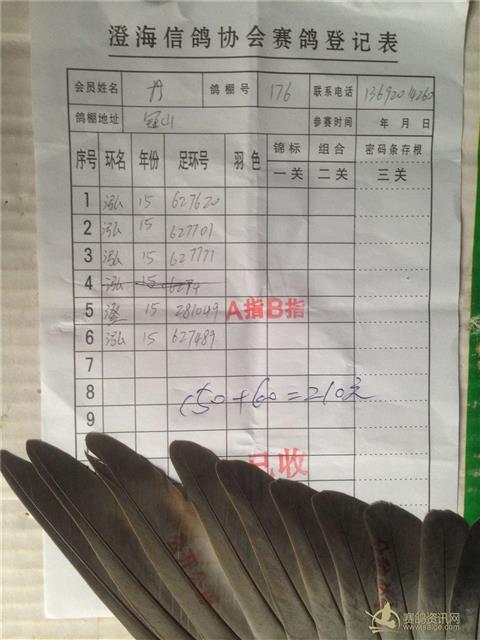 澄海信鸽协会赛鸽登记表
会员姓名 丹 鸽棚号 176 联系电话 13692014260
鸽棚地址 冠山 参赛时间 年 月 日
序号 环名 年份 足环号 羽色 锦标 组合 密码条存根
一关 二关 三关
1 泓 15 627620
2 泓 15 627701
3 泓 15 627771
4 泓 15
5 澄 15 281049 A指B指
6 泓 15 627489
7
8 150+60=210元
9
已收
赛鸽资讯网
www.saige.com